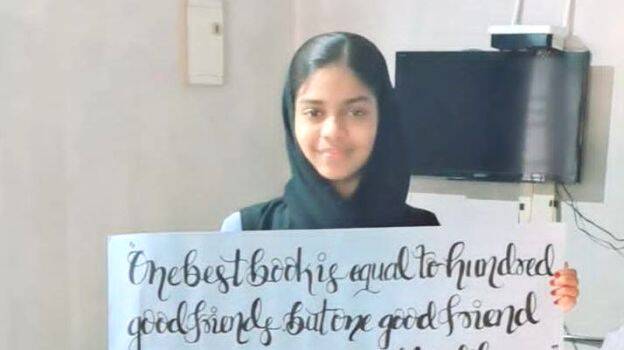 "One best book is equal to hundred
good friends but one good friend